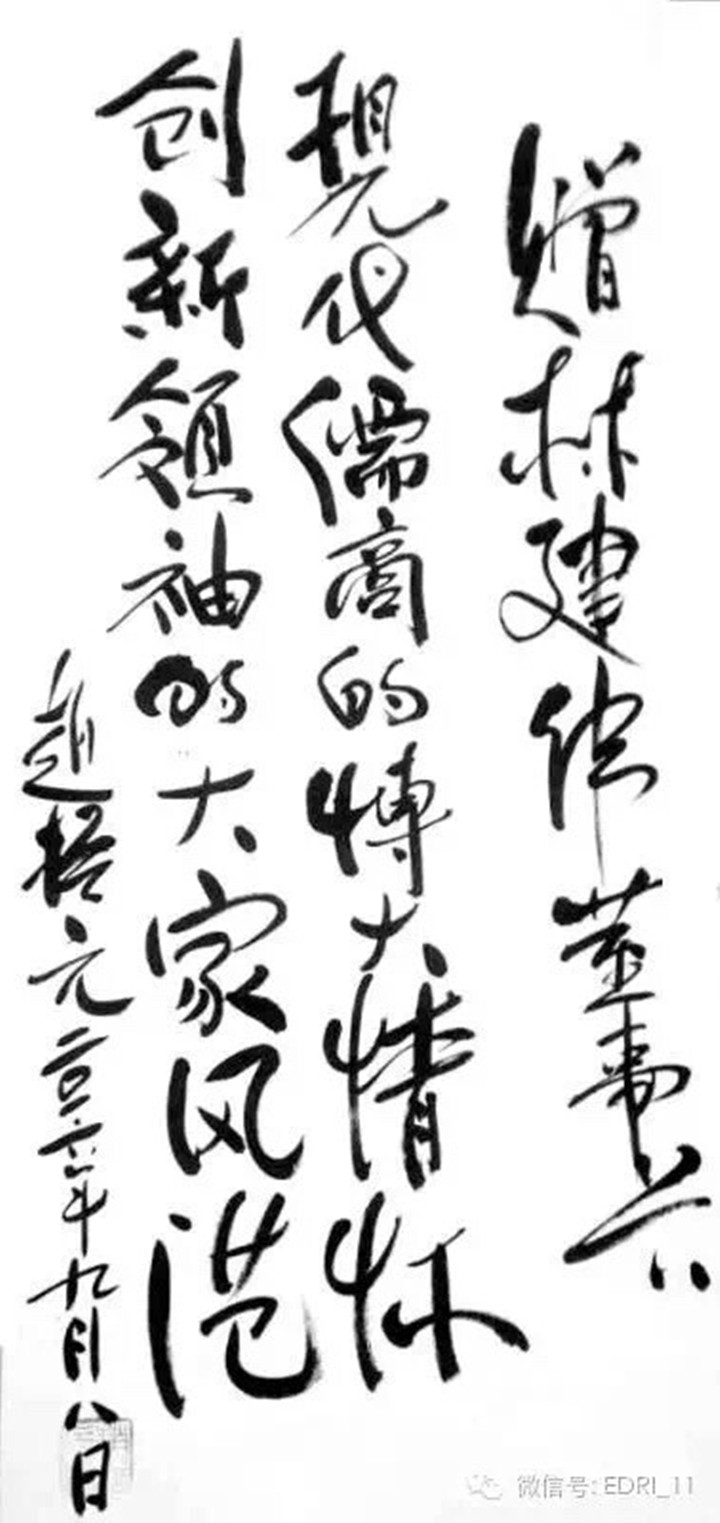 赠林建伟董事
现代儒商的博大情怀
创新领袖的大家风范
赵元二〇一六年九月八日
微信号: EDRI_11